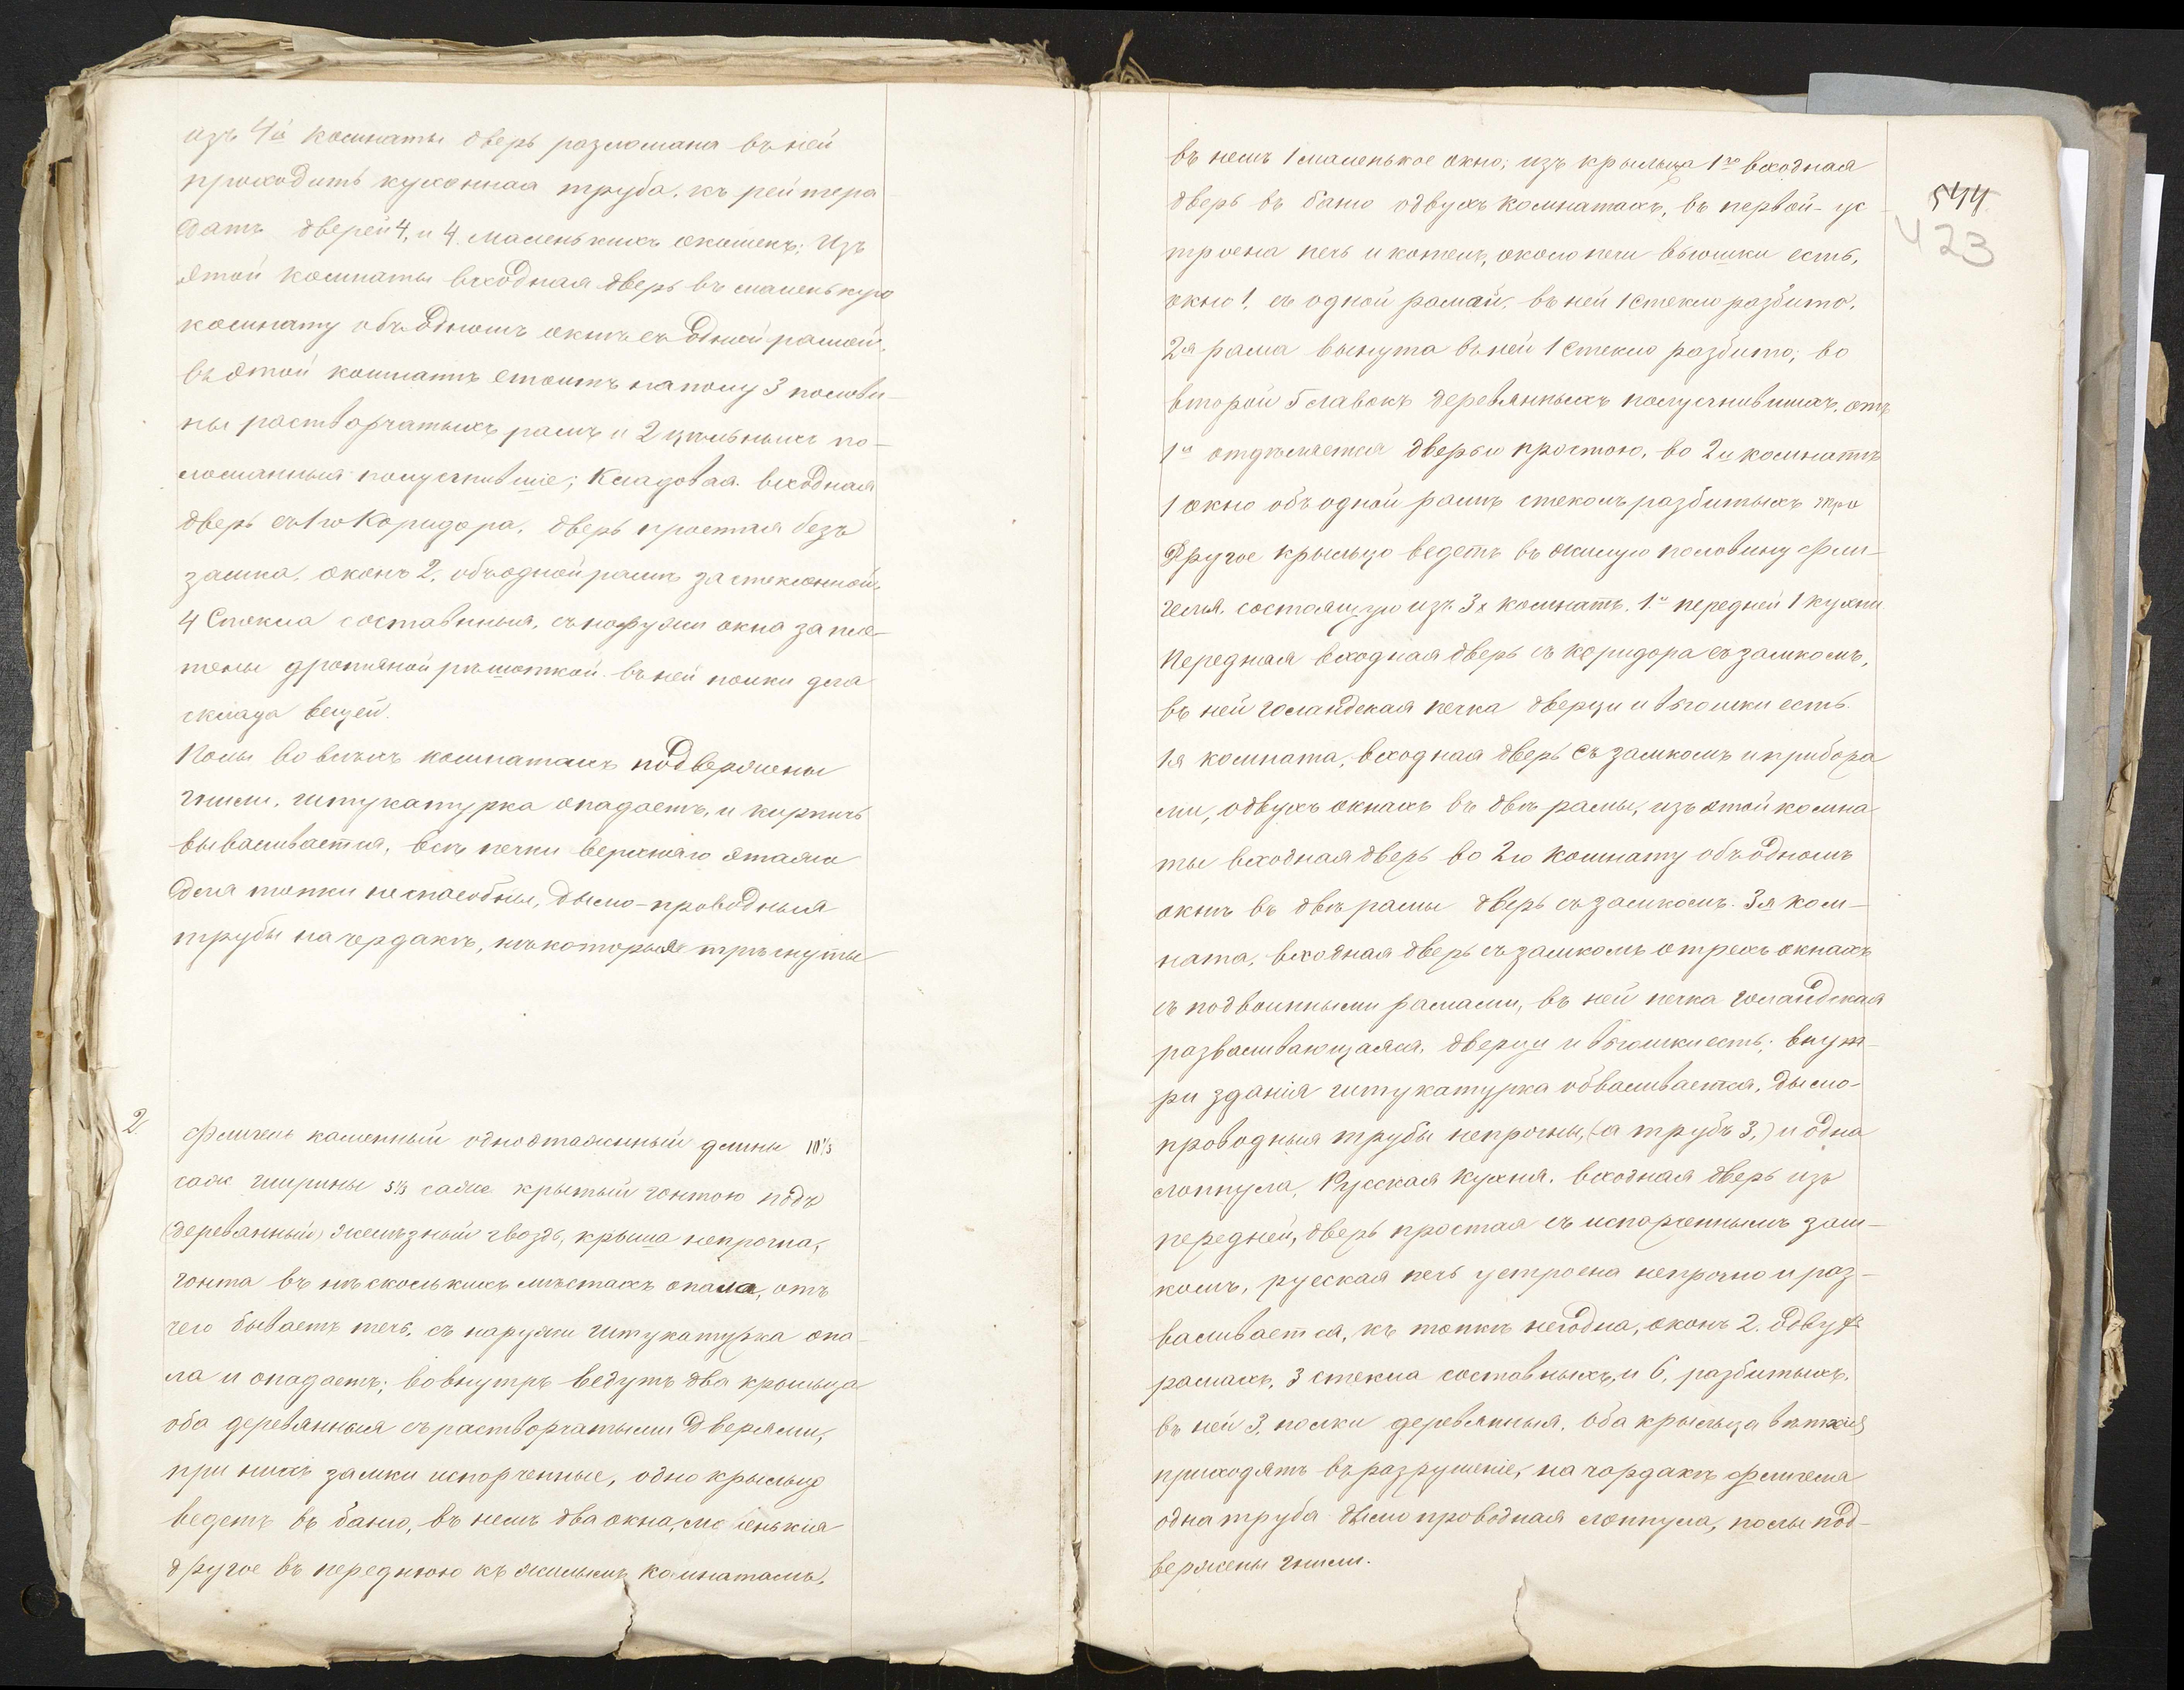 изъ 4й комнаты дверь разломана въ ней
проходитъ кухонная труба, къ рейтера
датъ дверей 4, и 4 маленькихъ окошекъ; Изъ
этой комнаты входная дверь въ маленькую
комнату объ одномъ окнѣ съ одной рамой,
въ этой комнатѣ стоитъ на полу 3 полови-
ны растворчатыхъ рамъ и 2 цѣльныхъ по-
ломанныя полусгнившіе; Кладовая входная
дверь съ 1го Коридора, дверь простая безъ
замка, оконъ 2, объ одной рамѣ застеклонной,
4 Стекла составныя, съ наружи окна запле-
тены дротяной рѣшоткой въ ней полки для
склада вещей.
Полы во всѣхъ комнатахъ подвержены
гнили, штукатурка опадаетъ, и кирпичъ
вываливается, всѣ печки верхняго этажа
для топки неспособны, дымо-проводныя
трубы на чердакѣ, нѣкоторыя трѣснуты
2. Флигель каменный одноэтажный длины 10⅓
саж ширины 5⅓ саже крытый гонтою подъ
(деревянный) желѣзный гвоздь, крыша непрочна,
гонта въ нѣсколькихъ мѣстахъ опала, отъ
чего бываетъ течь, съ наружи штукатурка опа-
ла и опадаетъ; во внутрь ведутъ два крыльца
оба деревянныя съ растворчатыми дверями,
при нихъ замки испорченные, одно крыльцо
ведетъ въ баню, въ немъ два окна, маленькія
другое въ переднюю къ жилымъ комнатамъ,
въ немъ 1 маленькое окно; изъ крыльца 1го входная
дверь въ баню одвухъ комнатахъ, въ первой - ус
троена печь и котелъ, около печи вьюшки есть,
окно 1, съ одной рамай, въ ней 1 стекло разбито,
2я рама вынута въ ней 1 стекло разбито; во
второй 5 лавокъ деревянныхъ полусгнившихъ, отъ
1й отдѣляется дверью простою, во 2й комнатѣ
1 окно объ одной рамѣ стеколъ разбитыхъ тро
Другое крыльцо ведетъ въ жилую половину фли-
геля, состоящую изъ 3х комнатъ, 1й передней 1 кухни
Передняя входная дверь съ коридора съ замкомъ,
въ ней голандская печка дверцы и вьюшки есть.
1я комната, входная дверь съ замкомъ и прибора
ми, одвухъ окнахъ въ двѣ рамы, изъ этой комна
ты входная дверь во 2ю комнату объ одномъ
окнѣ въ двѣ рамы дверь съ замкомъ. 3я ком-
ната, входная дверь съ замкомъ отрехъ окнахъ
съ подвоинными рамами, въ ней печка голандская
разваливающаяся, дверцы и вьюшки есть; внут-
ри зданія штукатурка обваливается, дымо-
проводныя трубы непрочны, (а трубъ 3,) и одна
лопнула, Русская Кухня, входная дверь изъ
передней, дверь простая съ испорченнымъ зам-
комъ, русская печь устроена непрочно и раз-
валивается, къ топкѣ негодна, оконъ 2. одвух
рамахъ, 3 стекла составныхъ, и 6, разбитыхъ,
въ ней 3, полки деревянныя, Оба крыльца ветхія
приходятъ въ разрушеніе, на чордакѣ флигеля
одна труба дымопроводная лопнула, полы под-
вержены гнили.
544
423